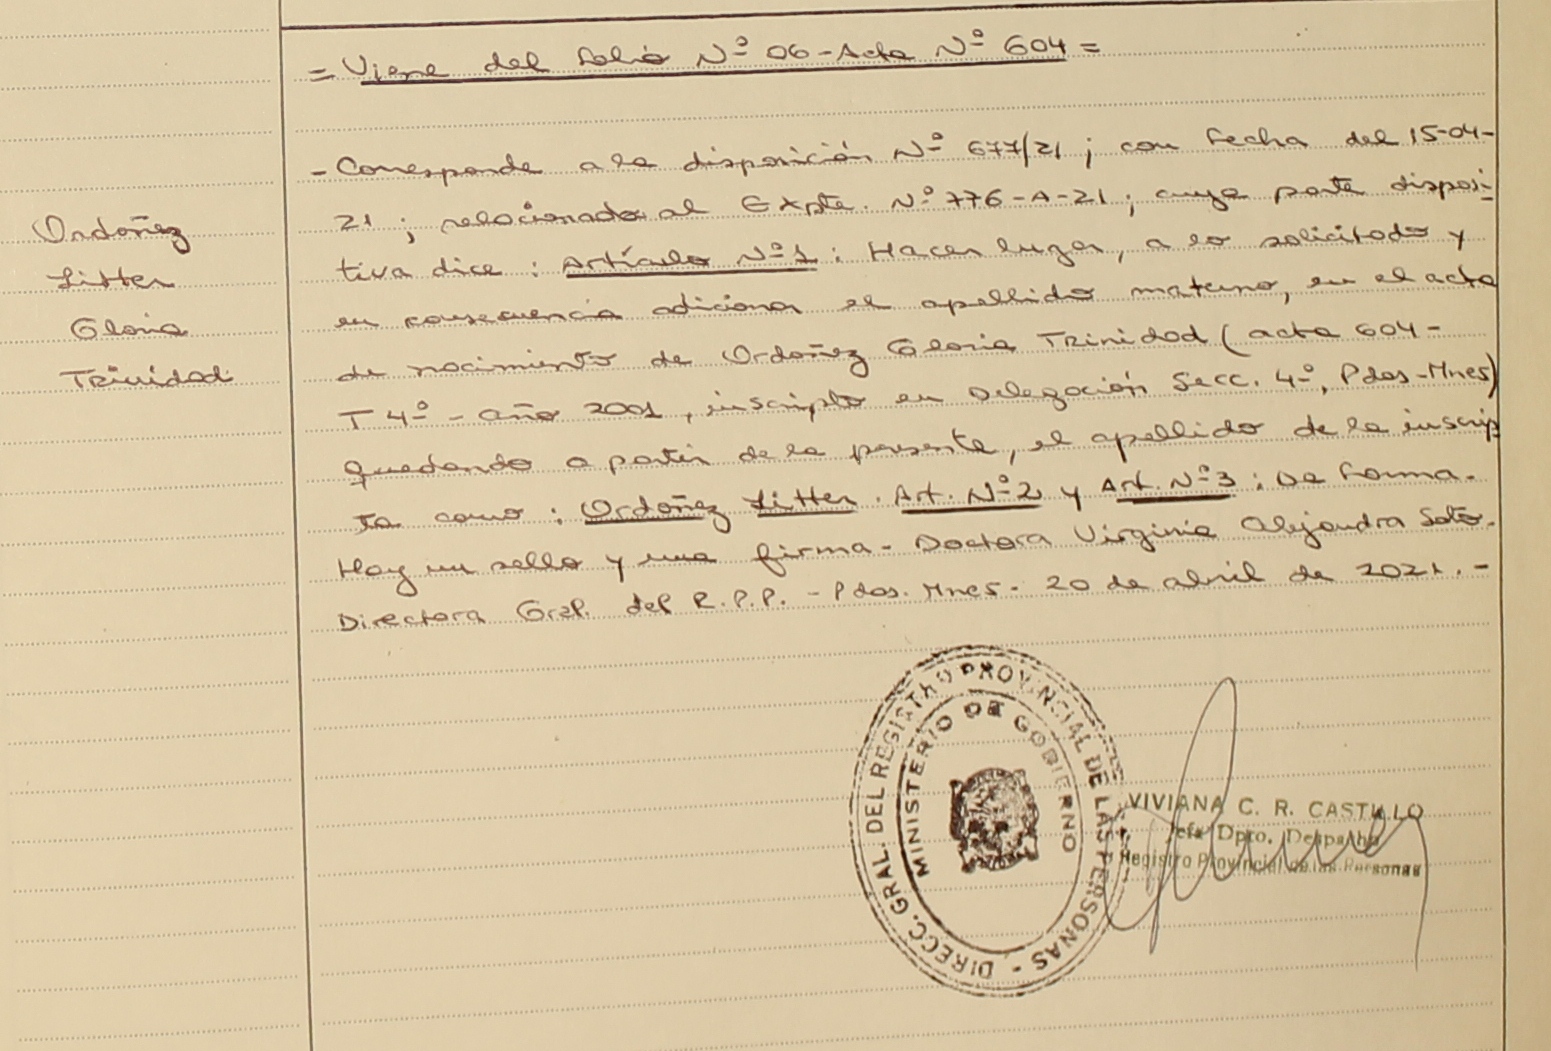 = Viene del Folio Nº 06 - Acta Nº 604 =
Ordoñez
Litter
Gloria
Trinidad
- Corresponde a la disposición Nº 677/21 ; con Fecha del 15-04-
21 ; relacionado al Expte. Nº 776-A-21 ; cuya parte disposi-
tiva dice : Artículo Nº 1 : Hacer lugar, a lo solicitado y
en consecuencia adicionar el apellido materno, en el acta
de nacimiento de Ordoñez Gloria Trinidad ( acta 604 -
T 4º - año 2001, inscripto en Delegación Secc. 4º, Pdas - Mnes)
quedando a partir de la presente, el apellido de la inscrip
ta como : Ordoñez Litter. Art. Nº 2 y Art. Nº 3 : De Forma.
Hay un sello y una firma - Doctora Virginia Alejandra Soto.
Directora Gral. del R.P.P. - Pdas. Mnes - 20 de abril de 2021. -
DIRECC. GRAL. DEL REGISTRO PROVINCIAL DE LAS PERSONAS -
MINISTERIO DE GOBIERNO
VIVIANA C. R. CASTILLO
Jefa Dpto. Despacho
Registro Provincial de las Personas